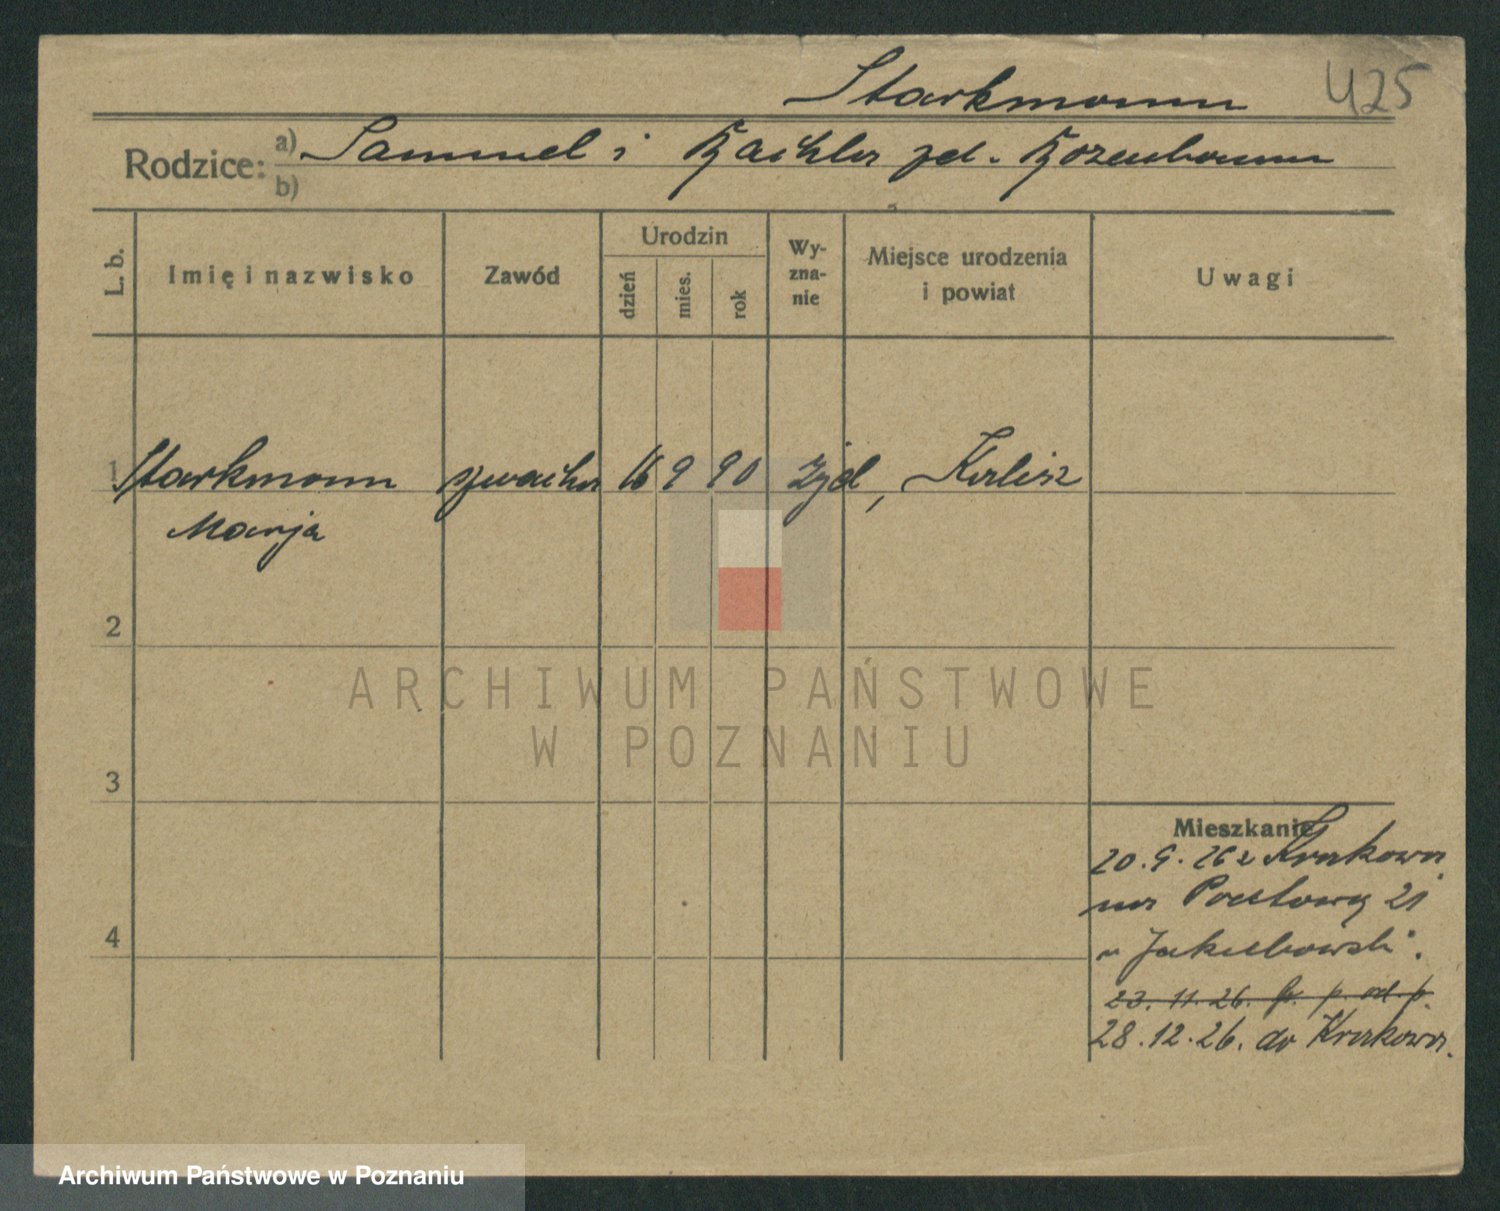 Starkmann 425
Rodzice: a) Samuel i Rachla zd. Rozenbaum
b)
L. b. Imię i nazwisko Zawód Urodzin dzień mies. rok Wyznanie Miejsce urodzenia i powiat Uwagi
1 Starkmann szwaczka 16 9 90 żyd, Kalisz
Marja
2
3
4
Mieszkanie
20.9.26 z Krakowa
na Pocztową 21
u Jakubowski.
23. 11. 26. p. od. p.
28.12.26. do Krakowa.
ARCHIWUM PAŃSTWOWE
W POZNANIU
Archiwum Państwowe w Poznaniu